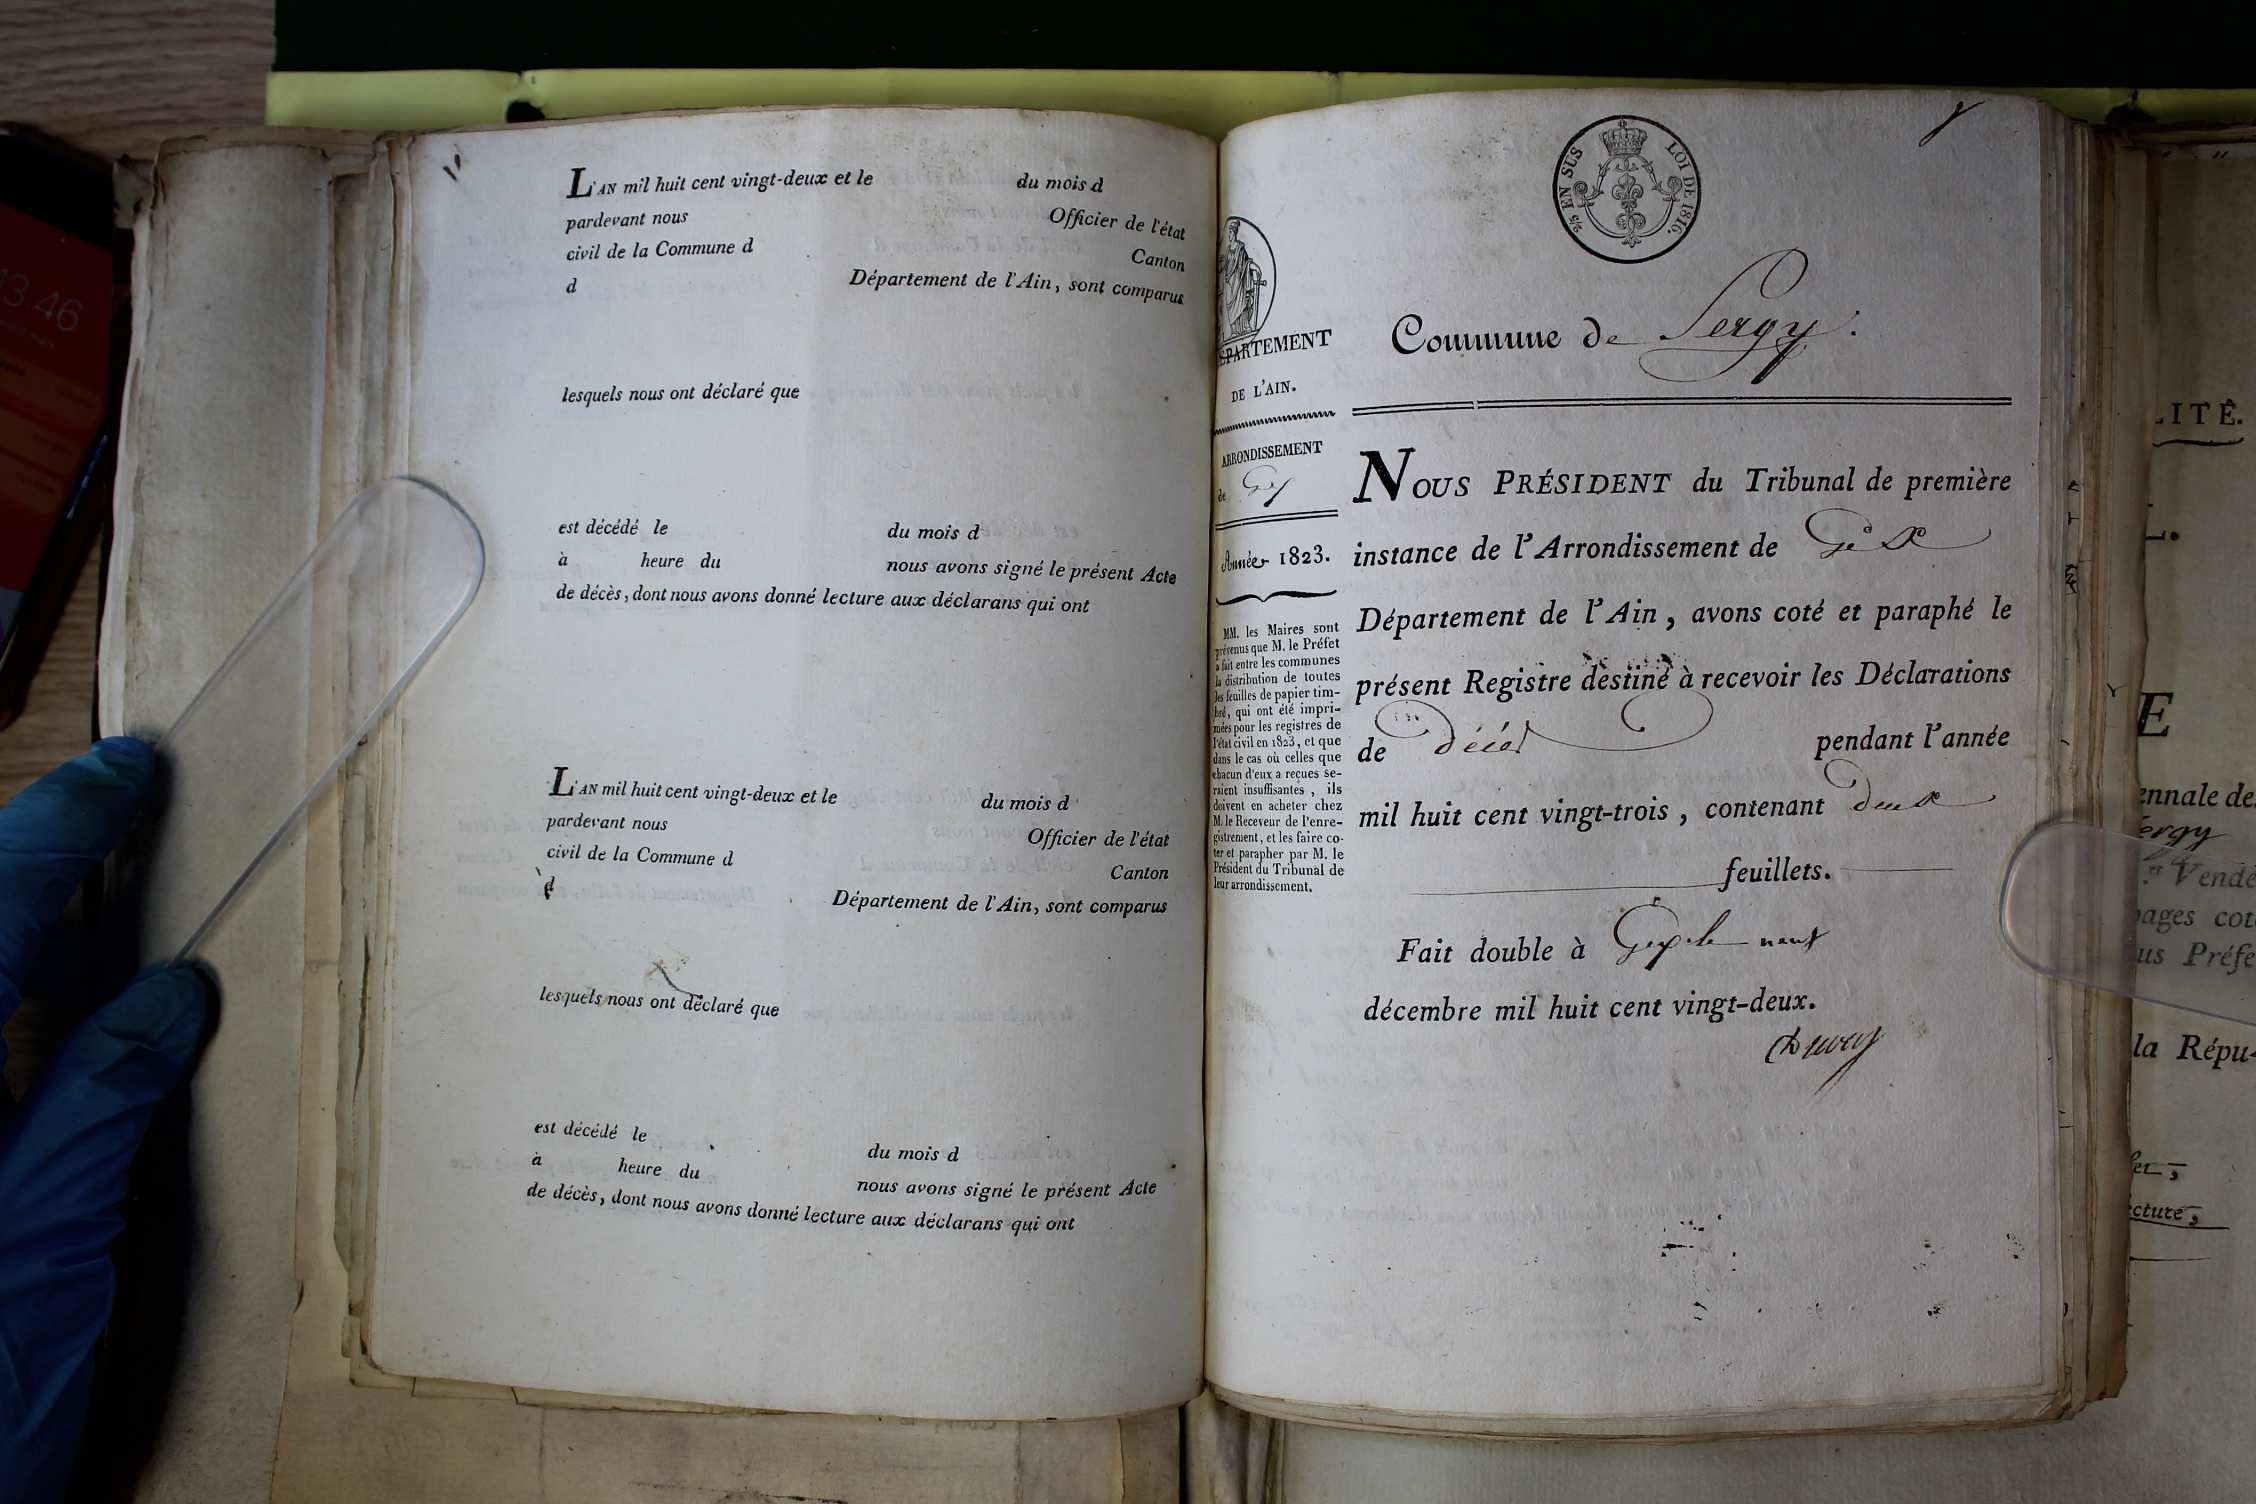 13 46
L'AN mil huit cent vingt-deux et le du mois d
pardevant nous Officier de l'état
civil de la Commune d Canton
d Département de l'Ain, sont comparus
lesquels nous ont déclaré que
est décédé le du mois d
à heure du nous avons signé le présent Acte
de décès, dont nous avons donné lecture aux déclarans qui ont
L'AN mil huit cent vingt-deux et le du mois d
pardevant nous Officier de l'état
civil de la Commune d Canton
d Département de l'Ain, sont comparus
lesquels nous ont déclaré que
est décédé le du mois d
à heure du nous avons signé le présent Acte
de décès, dont nous avons donné lecture aux déclarans qui ont
2/5 EN SUS LOI DE 1816.
ÉPARTEMENT
DE L'AIN.
ARRONDISSEMENT
de Gex
Année 1823.
MM. les Maires sont
prévenus que M. le Préfet
a fait entre les communes
la distribution de toutes
les feuilles de papier tim-
bré, qui ont été impri-
mées pour les registres de
l'état civil en 1823, et que
dans le cas où celles que
chacun d'eux a reçues se-
raient insuffisantes, ils
doivent en acheter chez
M. le Receveur de l'enre-
gistrement, et les faire co-
ter et parapher par M. le
Président du Tribunal de
leur arrondissement.
Commune de Sergy.
NOUS PRÉSIDENT du Tribunal de première
instance de l'Arrondissement de Gex
Département de l'Ain, avons coté et paraphé le
présent Registre destiné à recevoir les Déclarations
de décès pendant l'année
mil huit cent vingt-trois, contenant deux
feuillets.
Fait double à Gex le neuf
décembre mil huit cent vingt-deux.
LITÉ.
E
ennale de
Sergy
er Vendé
pages cot
us Préfe
la Répu-
cture,